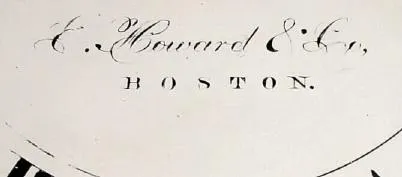 E. Howard & Co,
BOSTON.